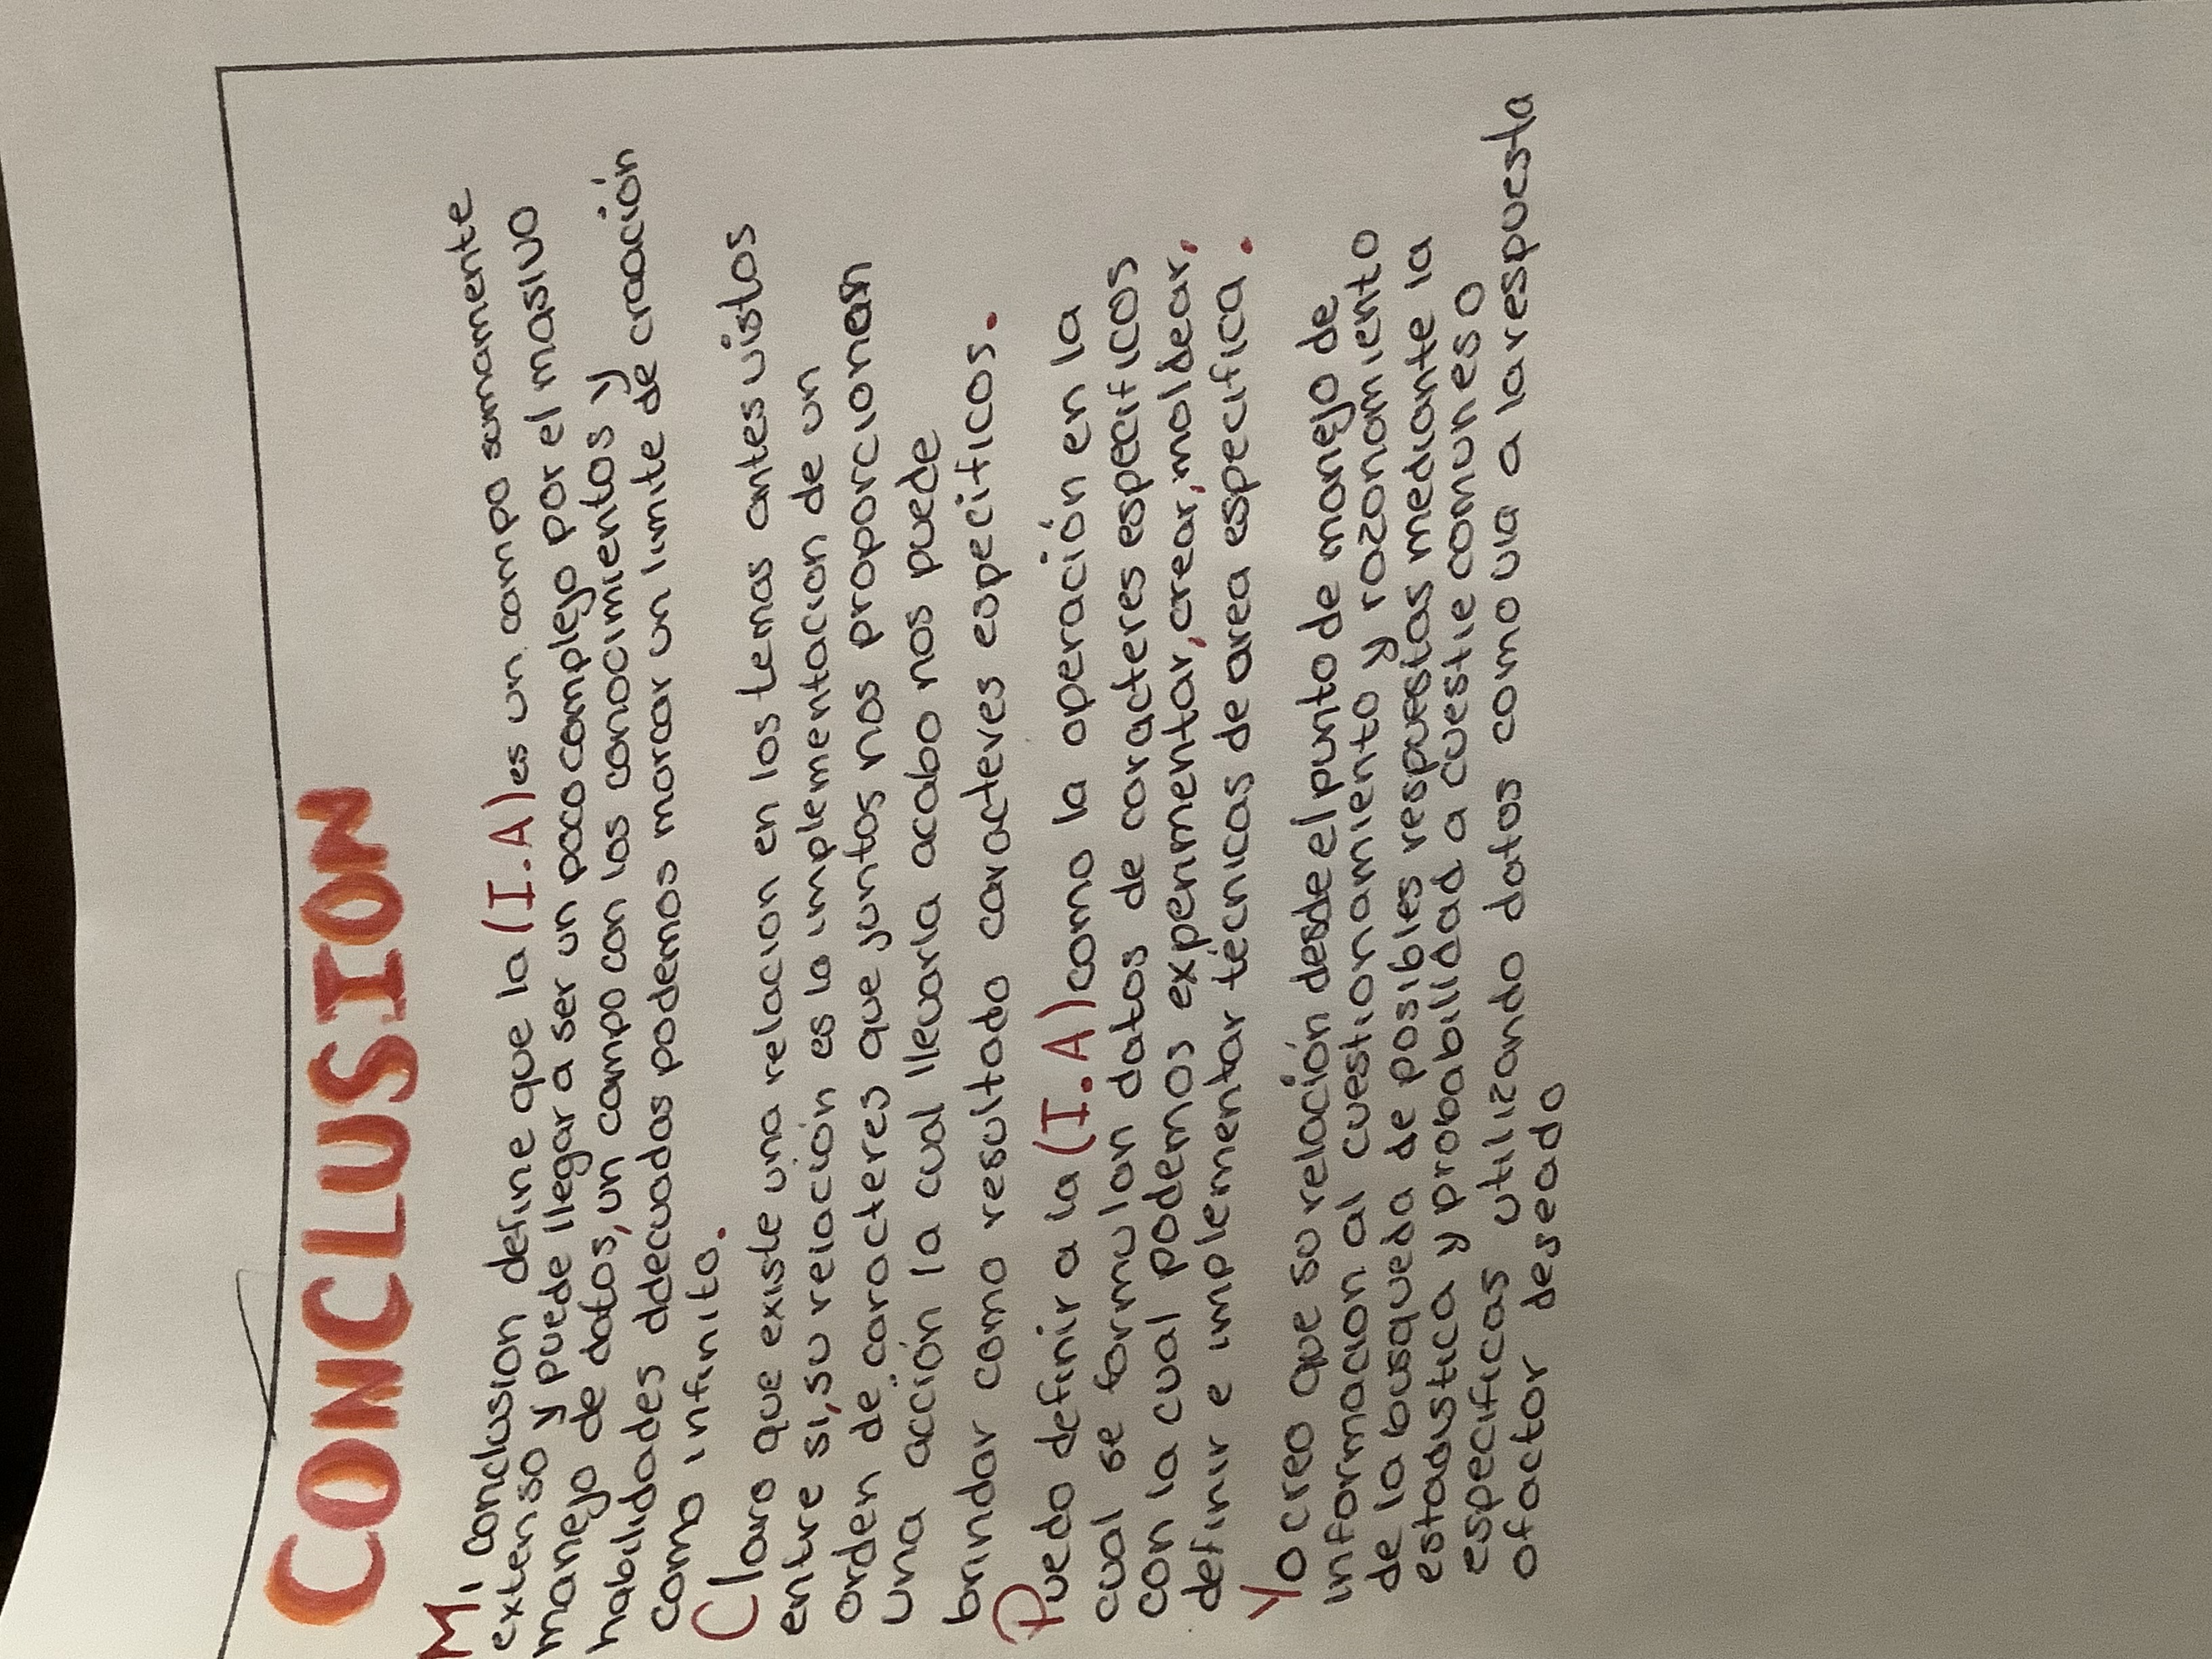 CONCLUSION
Mi conclusion define que la (I.A) es un campo sumamente
extenso y puede llegar a ser un poco complejo por el masivo
manejo de datos, un campo con los conocimientos y
habilidades ddecuadas podemos marcar un limite de craación
como infinito.
Claro que existe una relacion en los temas antes vistos
entre si, su relación es la implementacion de un
orden de caracteres que juntos nos proporcionan
una acción la cual llevarla acabo nos puede
brindar como resultado caracteres especificos.
Puedo definir a la (I.A) como la operación en la
cual se formulan datos de caracteres especificos
con la cual podemos experimentar, crear, moldear,
definir e implementar técnicas de area especifica.
Yo creo que su relación desde el punto de manejo de
informacion al cuestionamiento y razonamiento
de la busqueda de posibles respuestas mediante la
estadistica y probabilidad a cuestie comunes o
especificas utilizando datos como via a la respuesta
o factor deseado